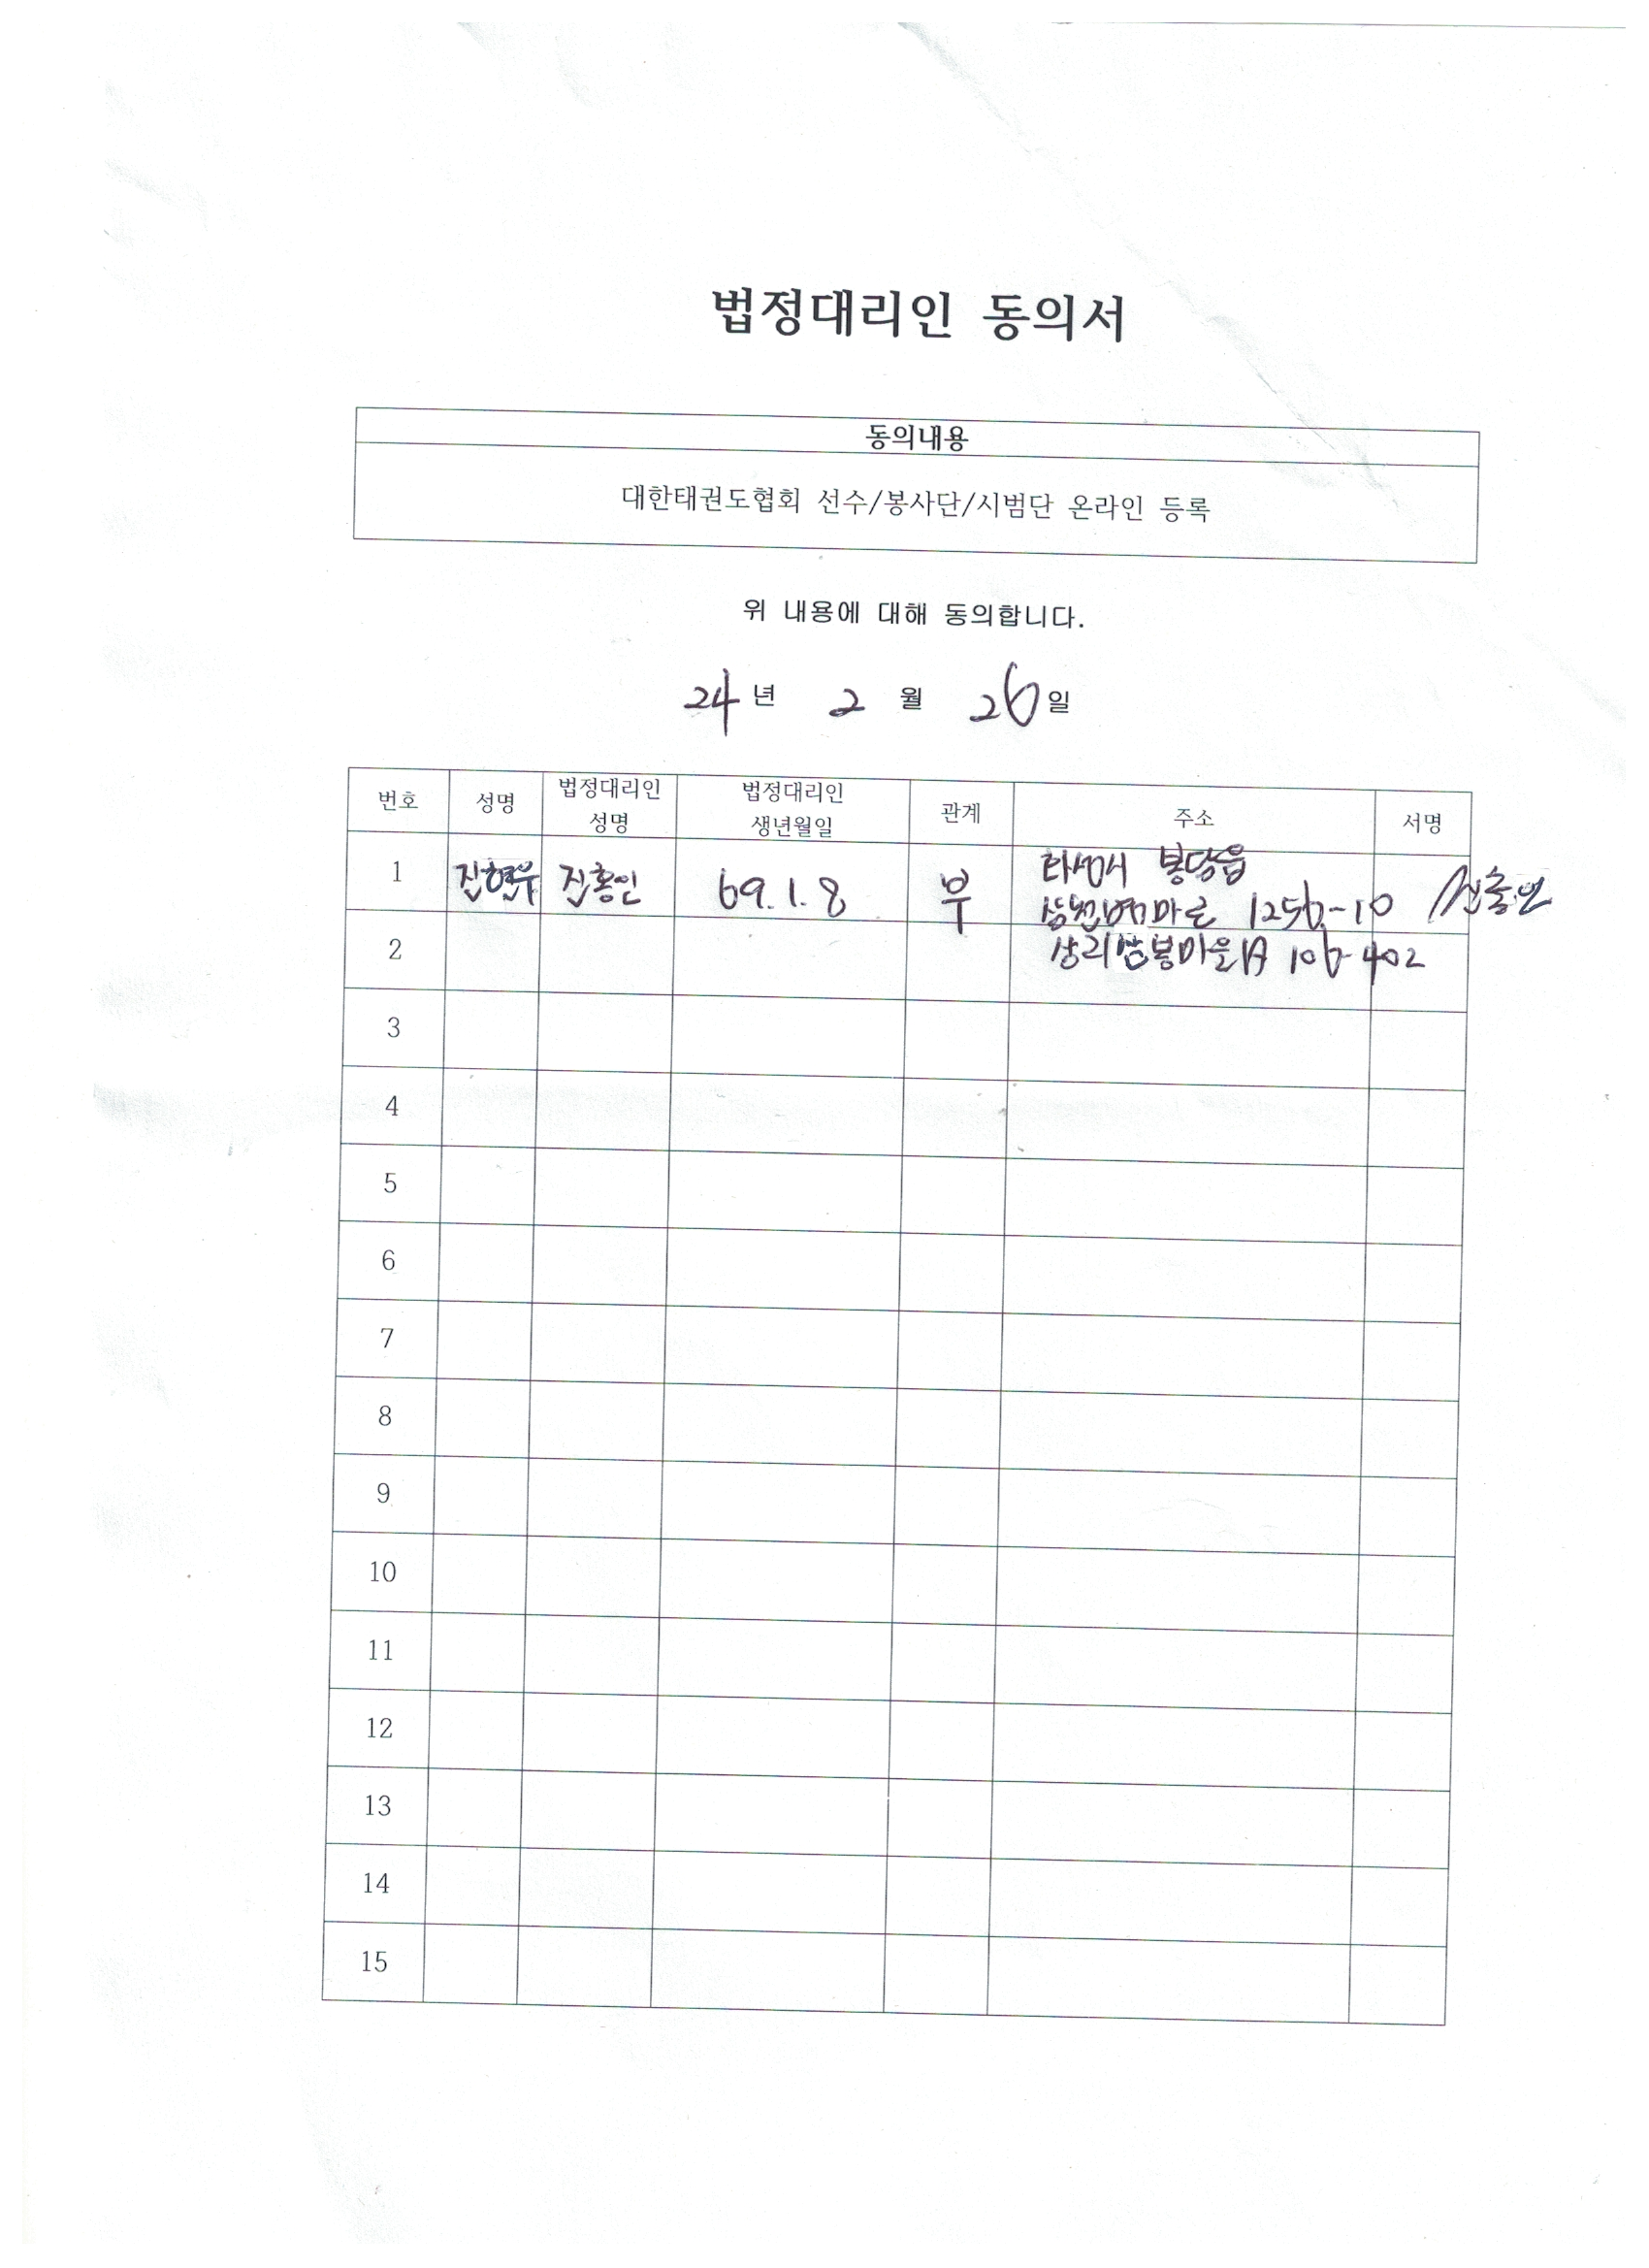 법정대리인 동의서
동의내용
대한태권도협회 선수/봉사단/시범단 온라인 등록
위 내용에 대해 동의합니다.
24년 2 월 26일
번호 성명 법정대리인 성명 법정대리인 생년월일 관계 주소 서명
1 진현우 진홍인 69.1.8 부 화성시 봉담읍
1256-10
상리 봉마을 106-402
2
3
4
5
6
7
8
9
10
11
12
13
14
15